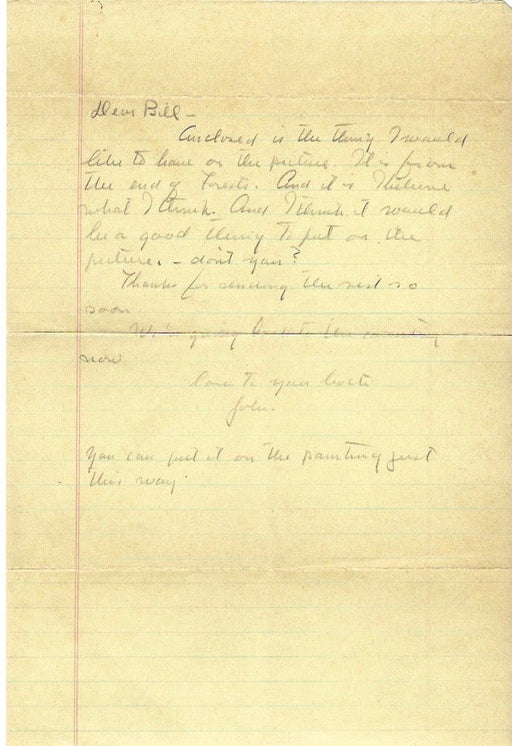 Dear Bill -
Enclosed is the thing I would
like to have on the picture. It is from
the end of Forests. And it is I believe
what I think. And I think it would
be a good thing to put on the
picture. - don't you?
Thanks for sending the rest so
soon
We're going back to the country
now
love to you both
John.
you can put it on the painting just
this way.